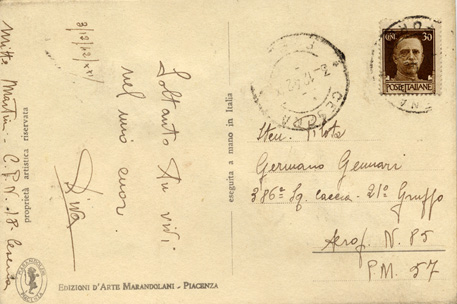 3/12/42/XXI
Soltanto tu vivi
nel mio cuor.
Diva
Mitte Martini - C.P.N. 18 - Cesena
proprietà artistica riservata
EDIZIONI D'ARTE MARANDOLANI - PIACENZA
eseguita a mano in Italia
CESENA
CENT. 30
POSTE ITALIANE
Sten. Pilota
Germano Gennari
386ª Sq. caccia - 21° Gruppo
Aerop. N. 85
P.M. 57